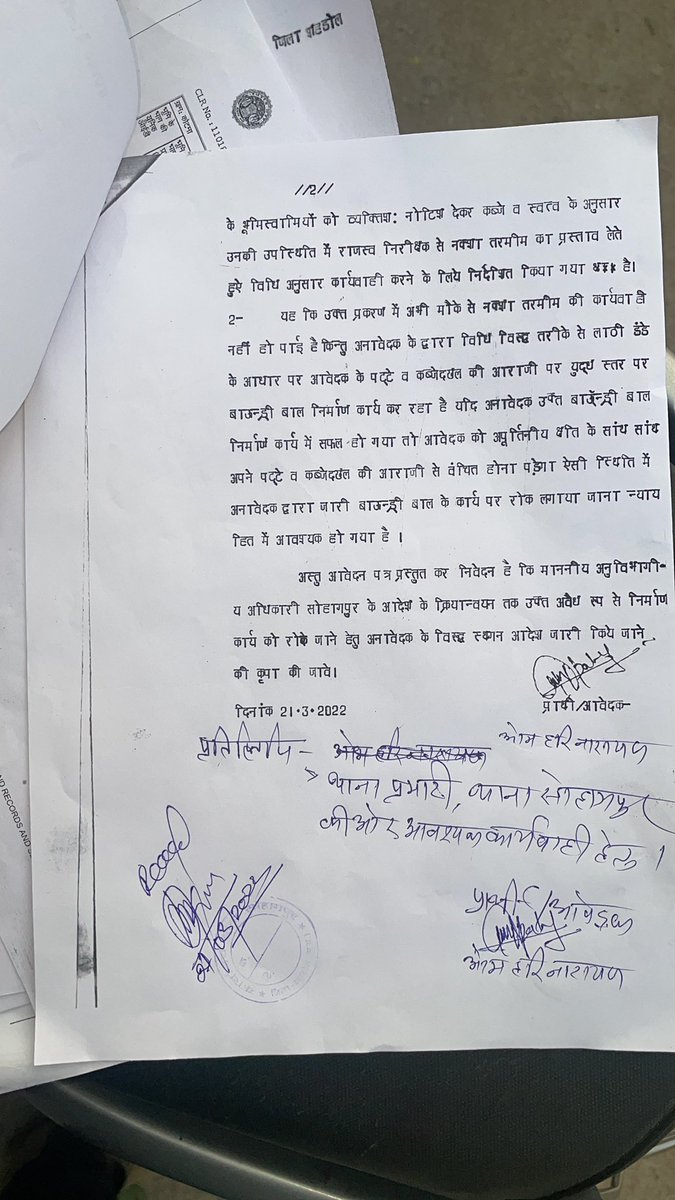 जिला शहडोल
CLR No.:11018
ग्राम, कोटमा
//2//
के भूमिस्वामियों को व्यक्तिश: नोटिश देकर कब्जे व स्वत्व के अनुसार
उनकी उपस्थिति में राजस्व निरीक्षक से नक्शा तरमीम का प्रस्ताव लेते
हुऐ विधि अनुसार कार्यवाही करने के लिये निर्देशित किया गया है।
2- यह कि उक्त प्रकरण में अभी मौके से नक्शा तरमीम की कार्यवाही
नहीं हो पाई है किन्तु अनावेदक के द्वारा विधि विरूद्ध तरीके से लाठी डंडे
के आधार पर आवेदक के पट्टे व कब्जेदखल की आराजी पर युद्ध स्तर पर
बाउन्ड्री बाल निर्माण कार्य कर रहा है यदि अनावेदक उक्त बाउन्ड्री बाल
निर्माण कार्य में सफल हो गया तो आवेदक को अपूर्तिनीय क्षति के सांथ सांथ
अपने पट्टे व कब्जेदखल की आराजी से वंचित होना पड़ेगा ऐसी स्थिति में
अनावेदक द्वारा जारी बाउन्ड्री बाल के कार्य पर रोक लगाया जाना न्याय
हित में आवश्यक हो गया है ।
अस्तु आवेदन पत्र प्रस्तुत कर निवेदन है कि माननीय अनुविभागी-
य अधिकारी सोहागपुर के आदेश के क्रियान्वयन तक उक्त अवैध रूप से निर्माण
कार्य को रोके जाने हेतु अनावेदक के विरूद्ध स्थगन आदेश जारी किये जाने
की कृपा की जावे।
दिनांक 21.3.2022
प्रार्थी/आवेदक
ओम हरि नारायण
प्रतिलिपि -
थाना प्रभारी, थाना सोहागपुर
की ओर आवश्यक कार्यवाही हेतु ।
प्रार्थी/आवेदक
ओम हरि नारायण